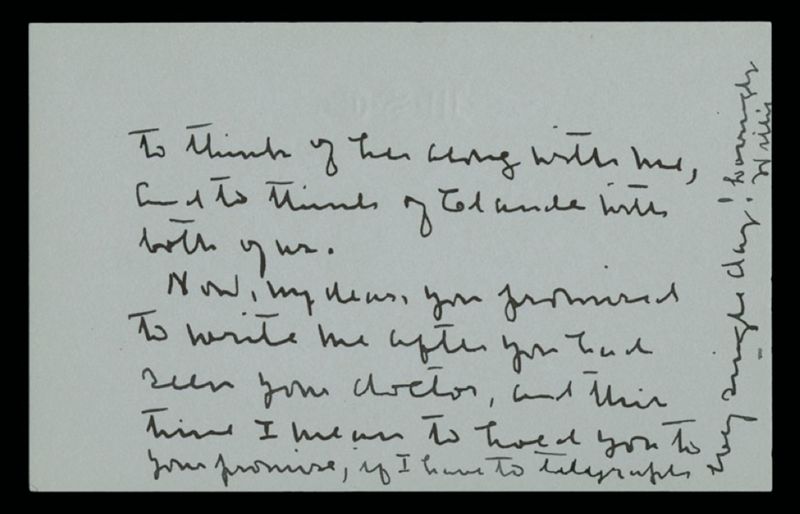 to think of her along with me,
and to think of Claude with
both of us.
Now, my dear, you promised
to write me after you had
seen your doctor, and this
time I mean to hold you to
your promise, if I have to telegraph
every single day! Lovingly
Willie